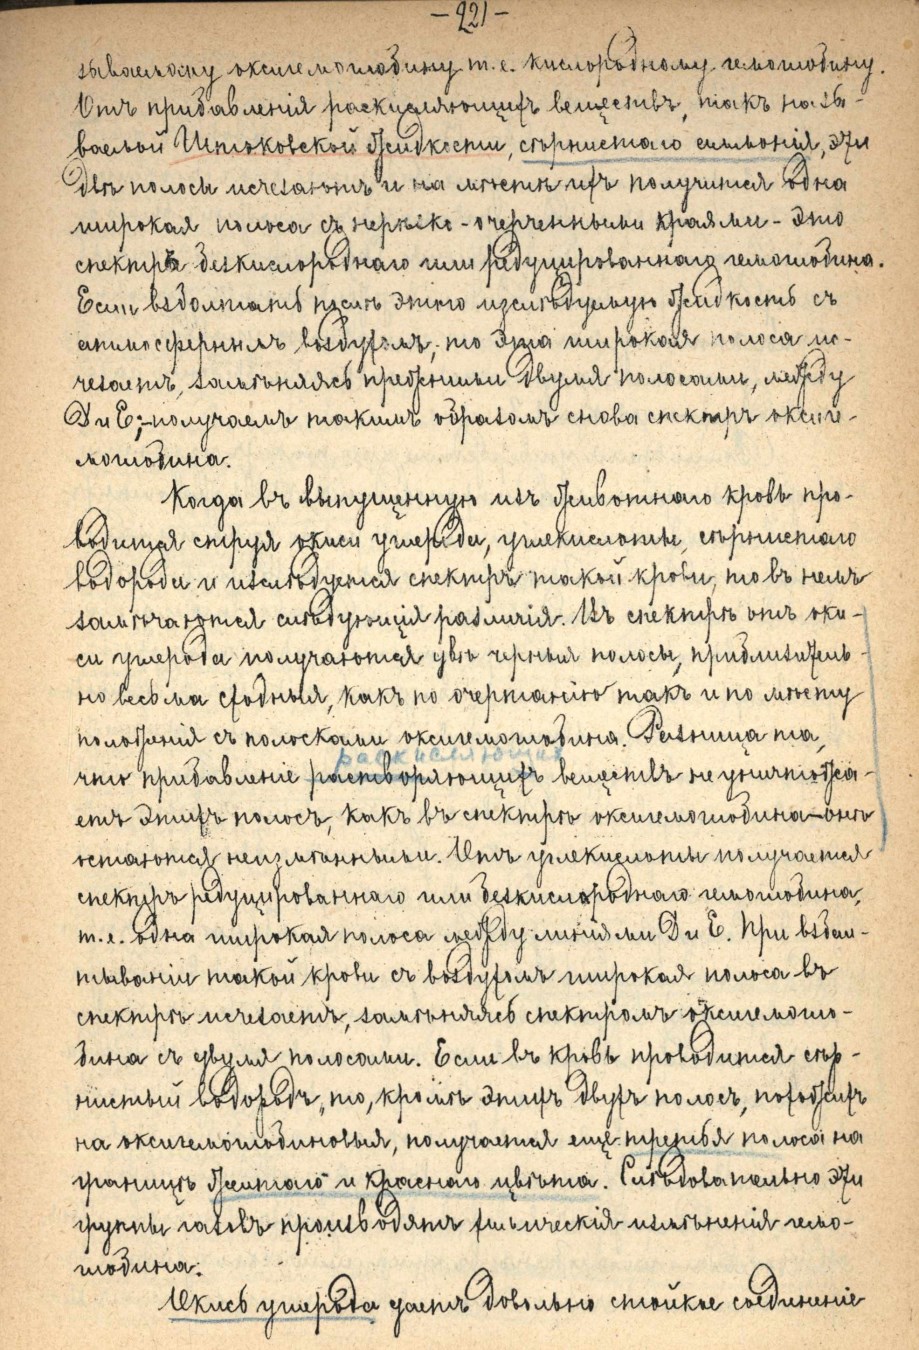 -221-
зываемому оксигемоглобину т.е. кислородному гемоглобину.
Отъ прибавленія раскисляющихъ веществъ, такъ назы-
ваемой Штоковской жидкости, сѣрнистаго аммонія, эти
двѣ полосы исчезаютъ и на мѣстѣ ихъ получится одна
широкая полоса съ нерѣзко-очерченными краями - это
спектръ безкислороднаго или редуцированнаго гемоглобина.
Если взболтать послѣ этого изслѣдуемую жидкость съ
атмосфернымъ воздухомъ, то эта широкая полоса ис-
чезаетъ, замѣняясь прежними двумя полосами, между
D и E; - получаемъ такимъ образомъ снова спектръ оксиге-
моглобина.
Когда въ выпущенную изъ животнаго кровь про-
водится струя окиси углерода, углекислоты, сѣрнистаго
водорода и изслѣдуется спектръ такой крови, то въ немъ
замѣчаются слѣдующія различія. Въ спектрѣ отъ оки-
си углерода получаются двѣ черныя полосы, приблизитель-
но весьма сходныя, какъ по очертанію такъ и по мѣсту
положенія съ полосками оксигемоглобина. Разница та,
раскисляющихъ
что прибавленіе растворяющихъ веществъ не уничтожа-
етъ этихъ полосъ, какъ въ спектрѣ оксигемоглобина - онѣ
остаются неизмѣнными. Отъ углекислоты получается
спектръ редуцированнаго или безкислороднаго гемоглобина,
т.е. одна широкая полоса между линіями D и E. При взбал-
тываніи такой крови съ воздухомъ широкая полоса въ
спектрѣ исчезаетъ, замѣняясь спектромъ оксигемогло-
бина съ двумя полосами. Если въ кровь проводится сѣр-
нистый водородъ, то, кромѣ этихъ двухъ полосъ, похожихъ
на оксигемоглобиновыя, получается еще третья полоса на
границѣ желтаго и краснаго цвѣта. Слѣдовательно эти
группы газовъ производятъ химическія измѣненія гемо-
глобина.
Окись углерода даетъ довольно стойкое соединеніе